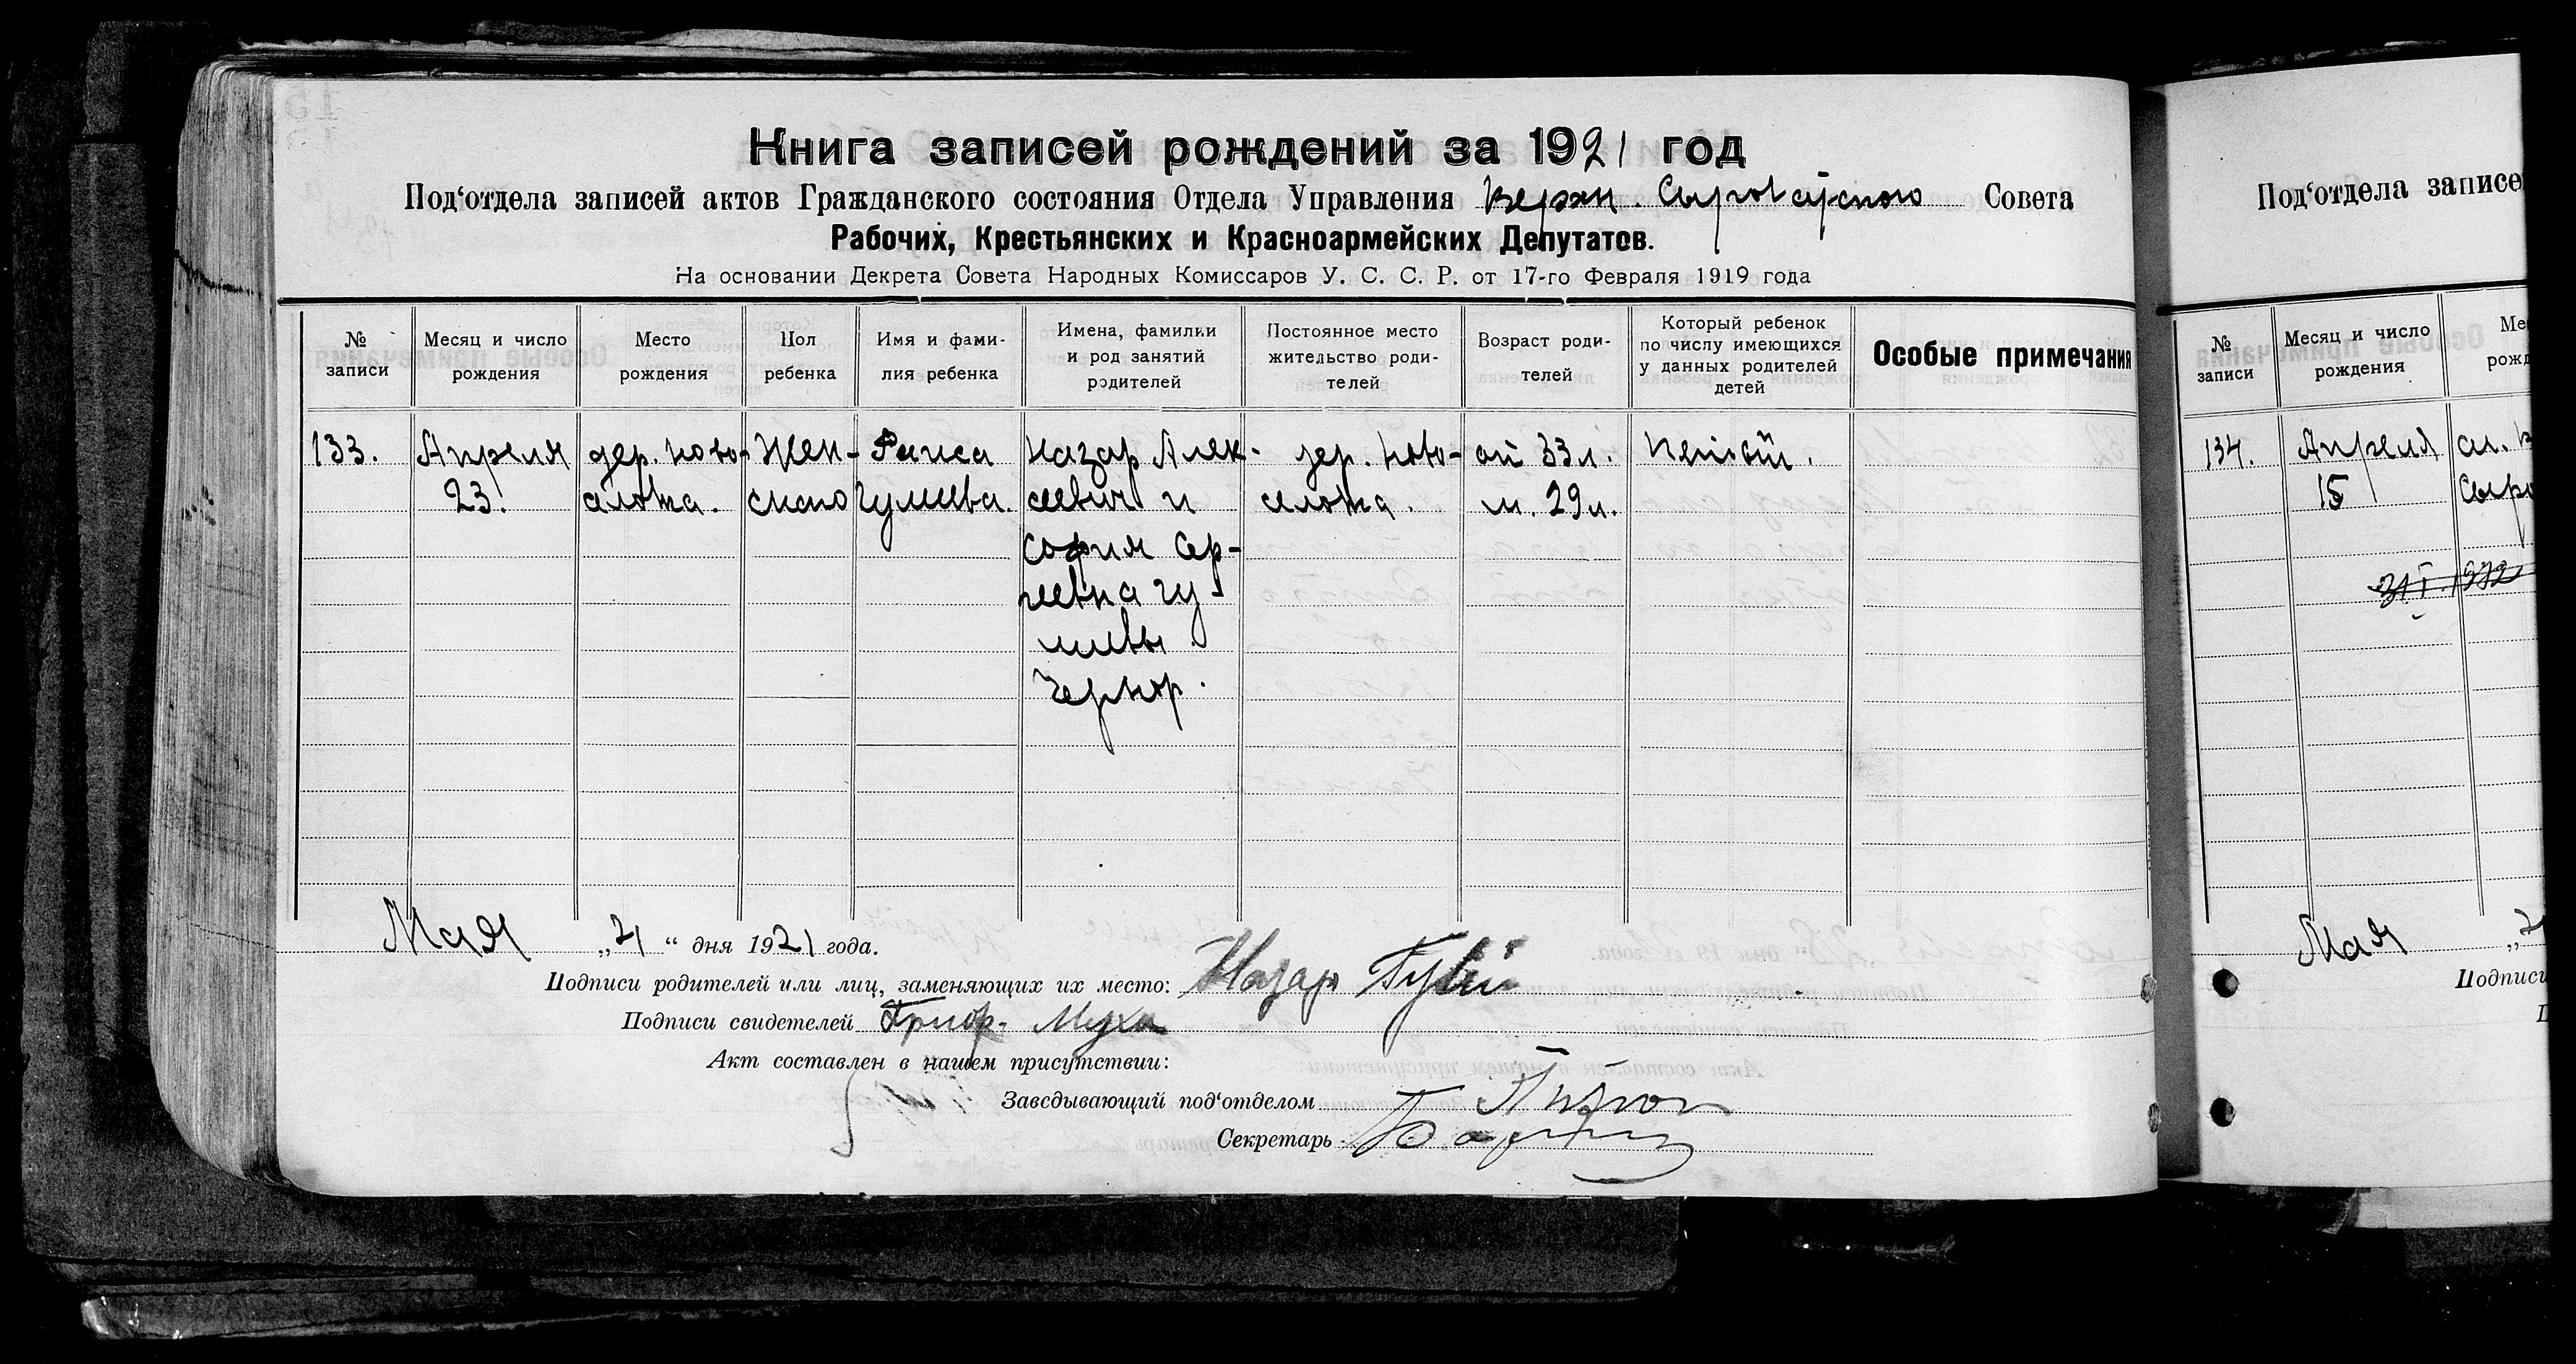 Книга записей рождений за 1921 год
Под‘отдела записей актов Гражданского состояния Отдела Управления Верхн. Сыроватского Совета
Рабочих, Крестьянских и Красноармейских Депутатов.
На основании Декрета Совета Народных Комиссаров У. С. С. Р. от 17-го Февраля 1919 года
№ записи
Месяц и число рождения
Место рождения
Пол ребенка
Имя и фами-
лия ребенка
Имена, фамилии
и род занятий
родителей
Постоянное место
жительство роди-
телей
Возраст роди-
телей
Который ребенок
по числу имеющихся
у данных родителей
детей
Особые примечания
133.
Апреля
23.
дер. Ново-
селовка.
Жен-
ского
Раиса
Назар Алек-
сеевич и
София Сер-
геевна
дер. Ново-
селовка.
от 33 л.
м. 29 л.
Мая „21“ дня 1921 года.
Подписи родителей или лиц, заменяющих их место: Назар
Подписи свидетелей Григор. Муха
Акт составлен в нашем присутствии:
Заведывающий под‘отделом
Секретарь
Под‘отдела записе
№ записи
Месяц и число
рождения
Ме
рожд
134.
Апреля
15
Сыро
31 I. 1972
Мая „2
Подписи